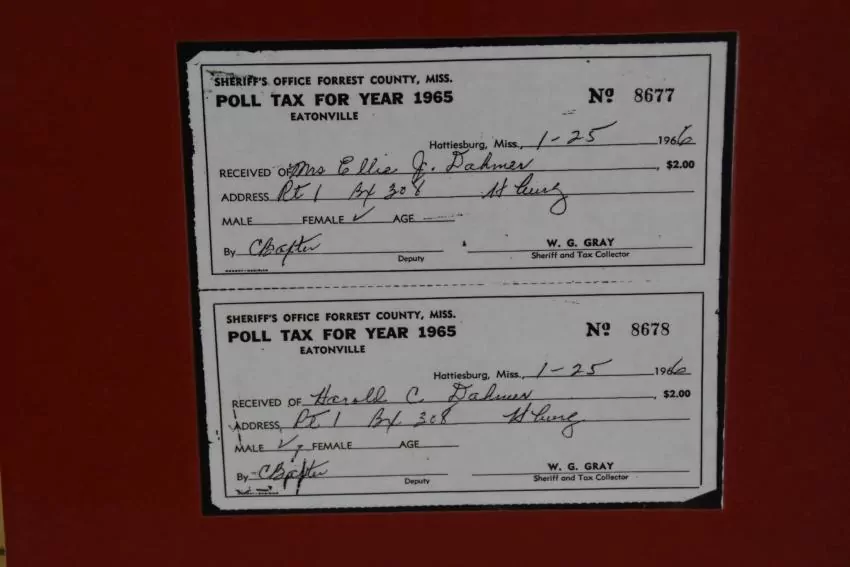 SHERIFF'S OFFICE FORREST COUNTY, MISS.
POLL TAX FOR YEAR 1965 Nº 8677
EATONVILLE
Hattiesburg, Miss., 1-25 1966
RECEIVED OF Mrs Ellie J. Dahmer, $2.00
ADDRESS Rt 1 Bx 308 H'burg
MALE FEMALE ✓ AGE
By W. G. GRAY
Deputy Sheriff and Tax Collector
SHERIFF'S OFFICE FORREST COUNTY, MISS.
POLL TAX FOR YEAR 1965 Nº 8678
EATONVILLE
Hattiesburg, Miss., 1-25 1966
RECEIVED OF Harold C. Dahmer, $2.00
ADDRESS Rt 1 Bx 308 H'burg
MALE ✓ FEMALE AGE
By W. G. GRAY
Deputy Sheriff and Tax Collector